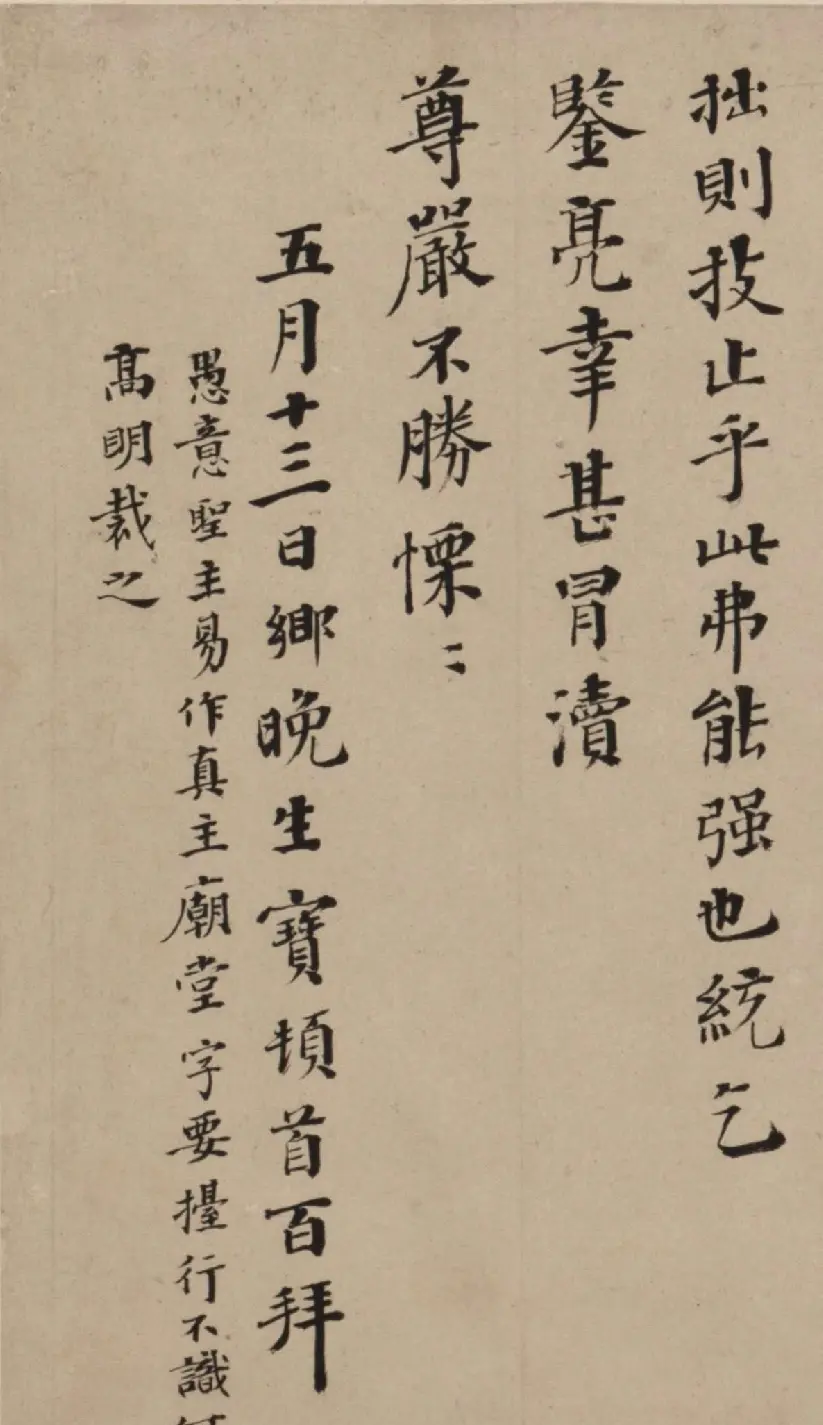 拙則技止乎此弗能强也統乞
鑒亮幸甚冒瀆
尊嚴不勝慄〻
五月十三日鄉晚生寶頓首百拜
愚意聖主易作真主廟堂字要擡行不識
高明裁之